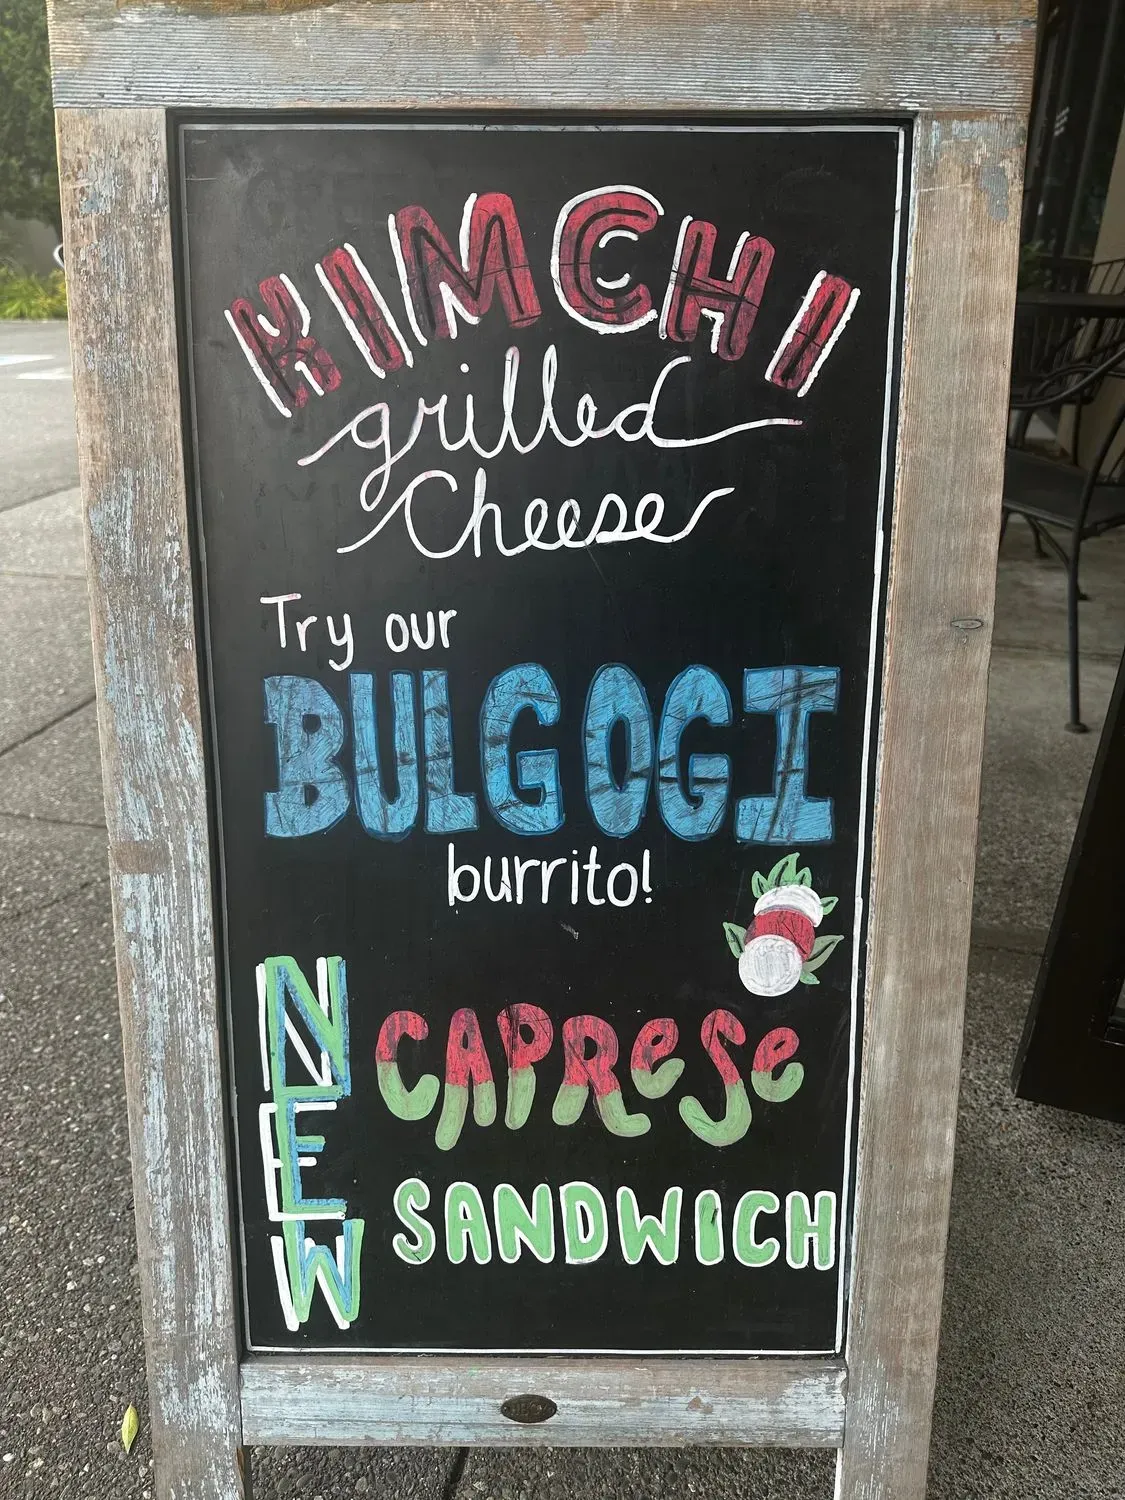 KIMCHI
grilled
Cheese
Try our
BULGOGI
burrito!
NEW
CAPReSe
SANDWICH